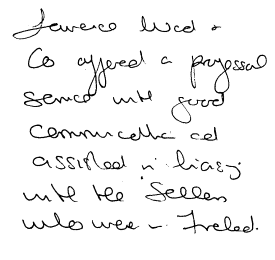 Lawrence Ward &
Co offered a professional
service with good
communication and
assisted in liasing
with the Sellers
who were in Ireland.